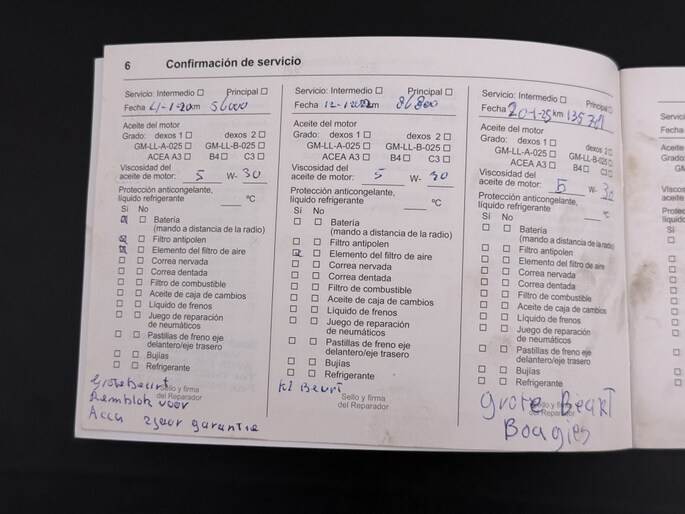 6 Confirmación de servicio
Servicio: Intermedio Principal
Fecha km 56000
Aceite del motor
Grado: dexos 1 dexos 2
GM-LL-A-025 GM-LL-B-025
ACEA A3 B4 C3
Viscosidad del
aceite de motor: 5 W- 30
Protección anticongelante,
líquido refrigerante °C
Sí No
Batería
(mando a distancia de la radio)
Filtro antipolen
Elemento del filtro de aire
Correa nervada
Correa dentada
Filtro de combustible
Aceite de caja de cambios
Líquido de frenos
Juego de reparación
de neumáticos
Pastillas de freno eje
delantero/eje trasero
Bujías
Refrigerante
Sello y firma
del Reparador
Grote beurt
Remblok voor
Accu 2jaar garantie
Servicio: Intermedio Principal
Fecha km 86800
Aceite del motor
Grado: dexos 1 dexos 2
GM-LL-A-025 GM-LL-B-025
ACEA A3 B4 C3
Viscosidad del
aceite de motor: 5 W- 30
Protección anticongelante,
líquido refrigerante °C
Sí No
Batería
(mando a distancia de la radio)
Filtro antipolen
Elemento del filtro de aire
Correa nervada
Correa dentada
Filtro de combustible
Aceite de caja de cambios
Líquido de frenos
Juego de reparación
de neumáticos
Pastillas de freno eje
delantero/eje trasero
Bujías
Refrigerante
Sello y firma
del Reparador
kl Beurt
Servicio: Intermedio Principal
Fecha 20-1-25 km
Aceite del motor
Grado: dexos 1 dexos 2
GM-LL-A-025 GM-LL-B-025
ACEA A3 B4 C3
Viscosidad del
aceite de motor: 5 W- 30
Protección anticongelante,
líquido refrigerante °C
Sí No
Batería
(mando a distancia de la radio)
Filtro antipolen
Elemento del filtro de aire
Correa nervada
Correa dentada
Filtro de combustible
Aceite de caja de cambios
Líquido de frenos
Juego de reparación
de neumáticos
Pastillas de freno eje
delantero/eje trasero
Bujías
Refrigerante
Sello y firma
del Reparador
Grote Beurt
Bougies